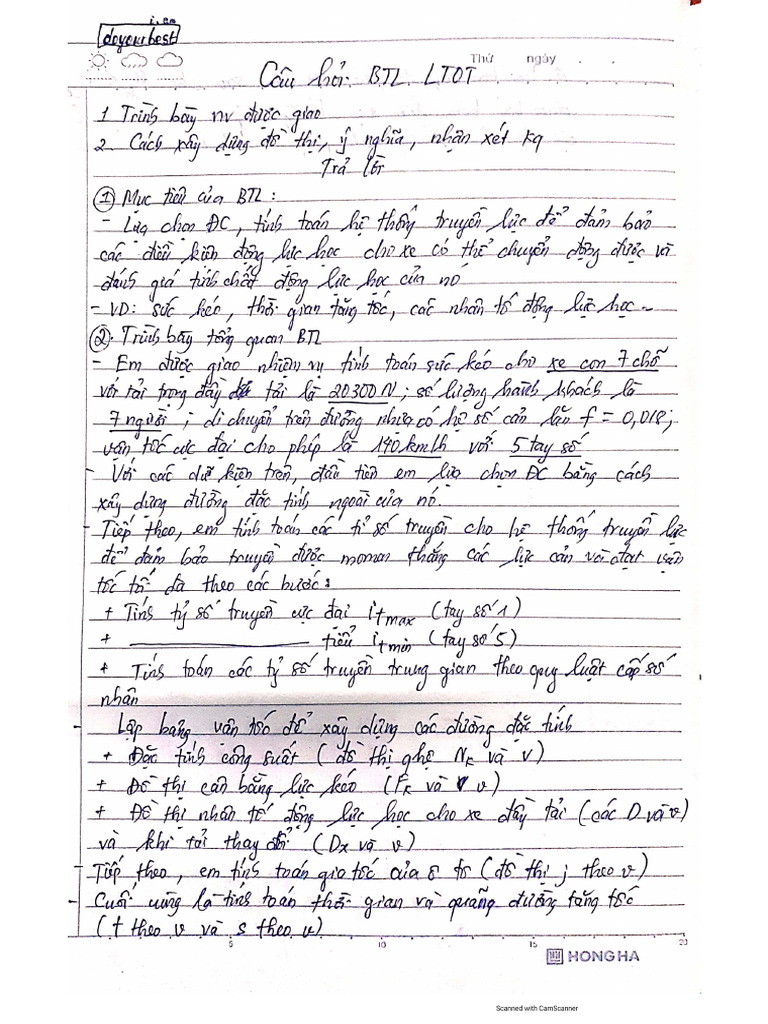 doyourbest
Thứ ngày
Câu hỏi BTL LTOT
1 Trình bày nv được giao
2. Cách xây dựng đồ thị, ý nghĩa, nhận xét kq
Trả lời
① Mục tiêu của BTL :
- Lựa chọn ĐC, tính toán hệ thống truyền lực để đảm bảo
các điều kiện động lực học cho xe có thể chuyển động được và
đánh giá tính chất động lực học của nó
- VD: sức kéo, thời gian tăng tốc, các nhân tố động lực học ~
②. Trình bày tổng quan BTL
- Em được giao nhiệm vụ tính toán sức kéo cho xe con 7 chỗ
với tải trọng đầy tải là 20300 N ; số lượng hành khách là
7 người ; di chuyển trên đường nhựa có hệ số cản lăn f = 0,018 ;
vận tốc cực đại cho phép là 140 km/h với 5 tay số
- Với các dữ kiện trên, đầu tiên em lựa chọn ĐC bằng cách
xây dựng đường đặc tính ngoài của nó.
- Tiếp theo, em tính toán các tỉ số truyền cho hệ thống truyền lực
để đảm bảo truyền được momen thắng các lực cản và đạt vận
tốc tối đa theo các bước :
+ Tính tỷ số truyền cực đại itmax (tay số 1)
+ ——— tiểu itmin (tay số 5)
+ Tính toán các tỷ số truyền trung gian theo quy luật cấp số
nhân
- Lập bảng vận tốc để xây dựng các đường đặc tính
+ Đặc tính công suất ( đồ thị ghệ NK và v)
+ Đồ thị cân bằng lực kéo (FK và v)
+ Đồ thị nhân tố động lực học cho xe đầy tải (các D và v)
và khi tải thay đổi (Dx và v)
- Tiếp theo, em tính toán gia tốc của ô tô (đồ thị j theo v)
- Cuối cùng là tính toán thời gian và quãng đường tăng tốc
( t theo v và s theo v)
5 10 15 20
HONG HA
Scanned with CamScanner